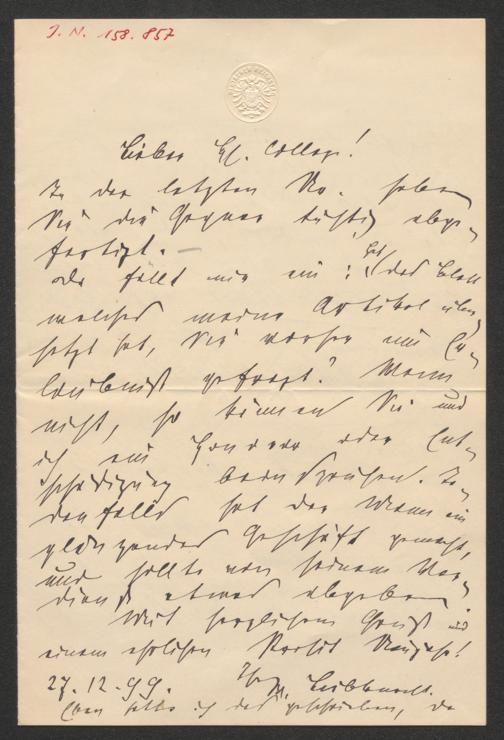 I. N. 158.857
DEUTSCHER REICHSTAG
Lieber Hr. College!
In der letzten No. haben
Sie die Gegner tüchtig abge-
fertigt. —
Da fällt mir ein: Hat das Blatt
welches meine Artikel über-
setzt hat, Sie vorher um Er-
laubniß gefragt? Wenn
nicht, so können Sie und
ich ein Honorar oder Ent-
schädigung beanspruchen. Je-
denfalls hat der Mann ein
glänzendes Geschäft gemacht,
und sollte von seinem Ver-
dienst etwas abgeben.
Mit herzlichem Gruß und
einem ehrlichen Prosit Neujahr!
27.12.99. Ihr W. Liebknecht.
Eben hatte ich das geschrieben, da